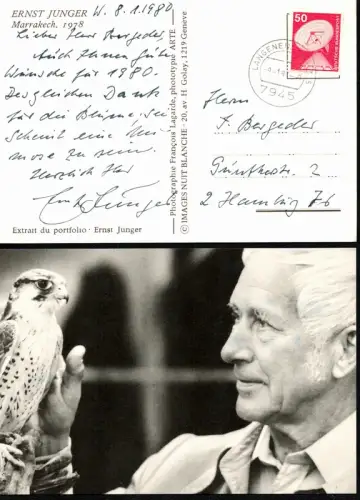 ERNST JÜNGER
Marrakech, 1978
W. 8.1.1980
Lieber Herr Bergeder,
Auch Ihnen gute
Wünsche für 1980.
Desgleichen Dank
für die Blüme. Sie
scheint eine Mi
mose zu sein.
Herzlich Ihr
Ernst Jünger
Extrait du portfolio · Ernst Junger
Photographie François Lagarde, phototype ARTE
© IMAGES NUIT BLANCHE - 20, av. H Golay, 1219 Geneve
50
7945
Herrn
F. Bergeder
2 Hamburg 76